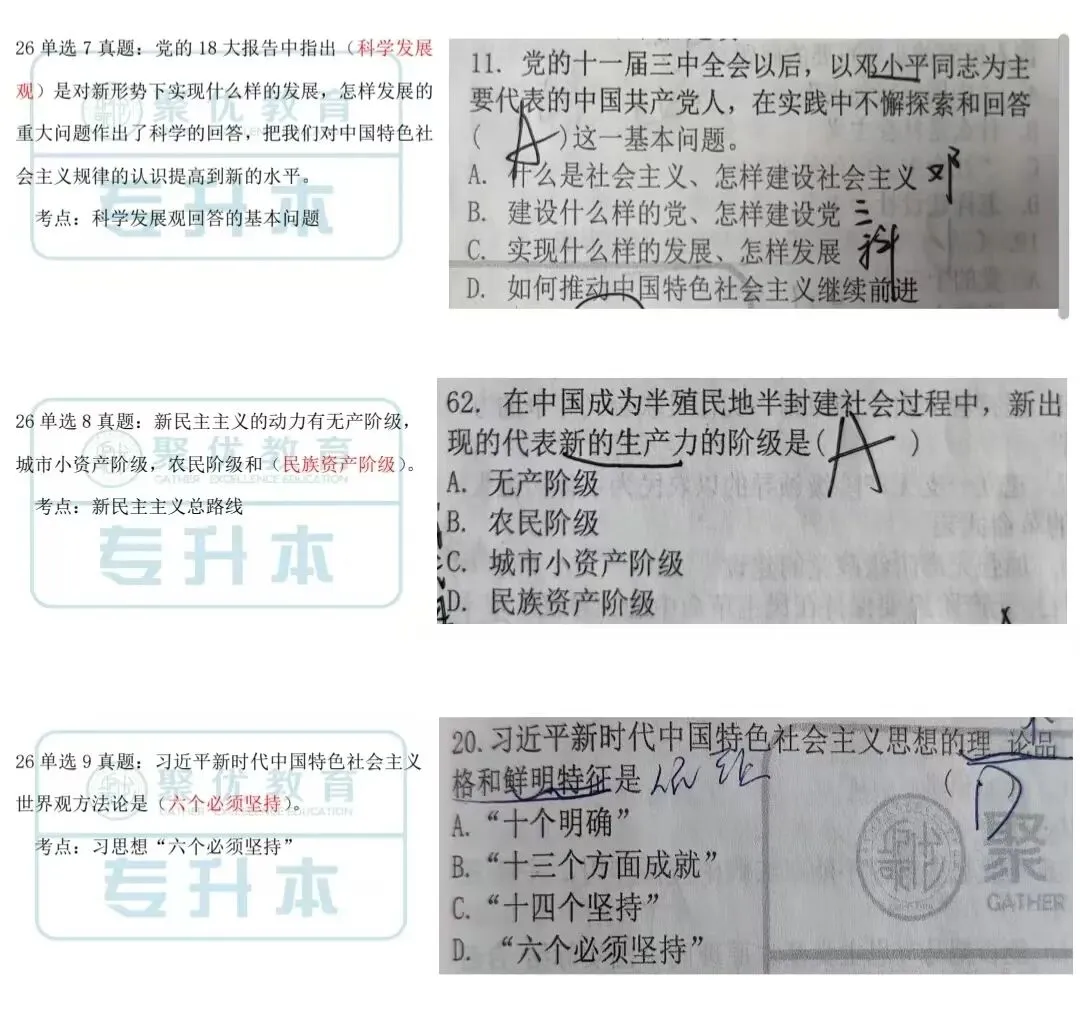 26 单选 7 真题：党的 18 大报告中指出（科学发展
观）是对新形势下实现什么样的发展，怎样发展的
重大问题作出了科学的回答，把我们对中国特色社
会主义规律的认识提高到新的水平。
考点：科学发展观回答的基本问题
聚优教育
专升本
11. 党的十一届三中全会以后，以邓小平同志为主
要代表的中国共产党人，在实践中不懈探索和回答
( A )这一基本问题。
A. 什么是社会主义、怎样建设社会主义 邓
B. 建设什么样的党、怎样建设党 三
C. 实现什么样的发展、怎样发展 科
D. 如何推动中国特色社会主义继续前进
26 单选 8 真题：新民主主义的动力有无产阶级，
城市小资产阶级，农民阶级和（民族资产阶级）。
考点：新民主主义总路线
聚优教育
GATHER EXCELLENCE EDUCATION
专升本
62. 在中国成为半殖民地半封建社会过程中，新出
现的代表新的生产力的阶级是( A )
A. 无产阶级
B. 农民阶级
C. 城市小资产阶级
D. 民族资产阶级
26 单选 9 真题：习近平新时代中国特色社会主义
世界观方法论是（六个必须坚持）。
考点：习思想“六个必须坚持”
聚优教育
专升本
20. 习近平新时代中国特色社会主义思想的理论品
格和鲜明特征是 ( D )
A. “十个明确”
B. “十三个方面成就”
C. “十四个坚持”
D. “六个必须坚持”
聚
GATHER